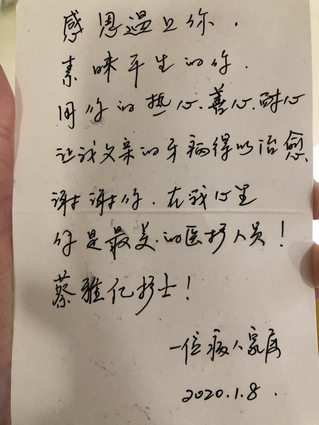 感恩遇见你.
素昧平生的你.
用你的热心、善心、耐心
让我父亲的牙病得以治愈
谢谢你.在我心里
你是最美的医护人员!
蔡雅亿护士!
一位病人家属
2020.1.8.